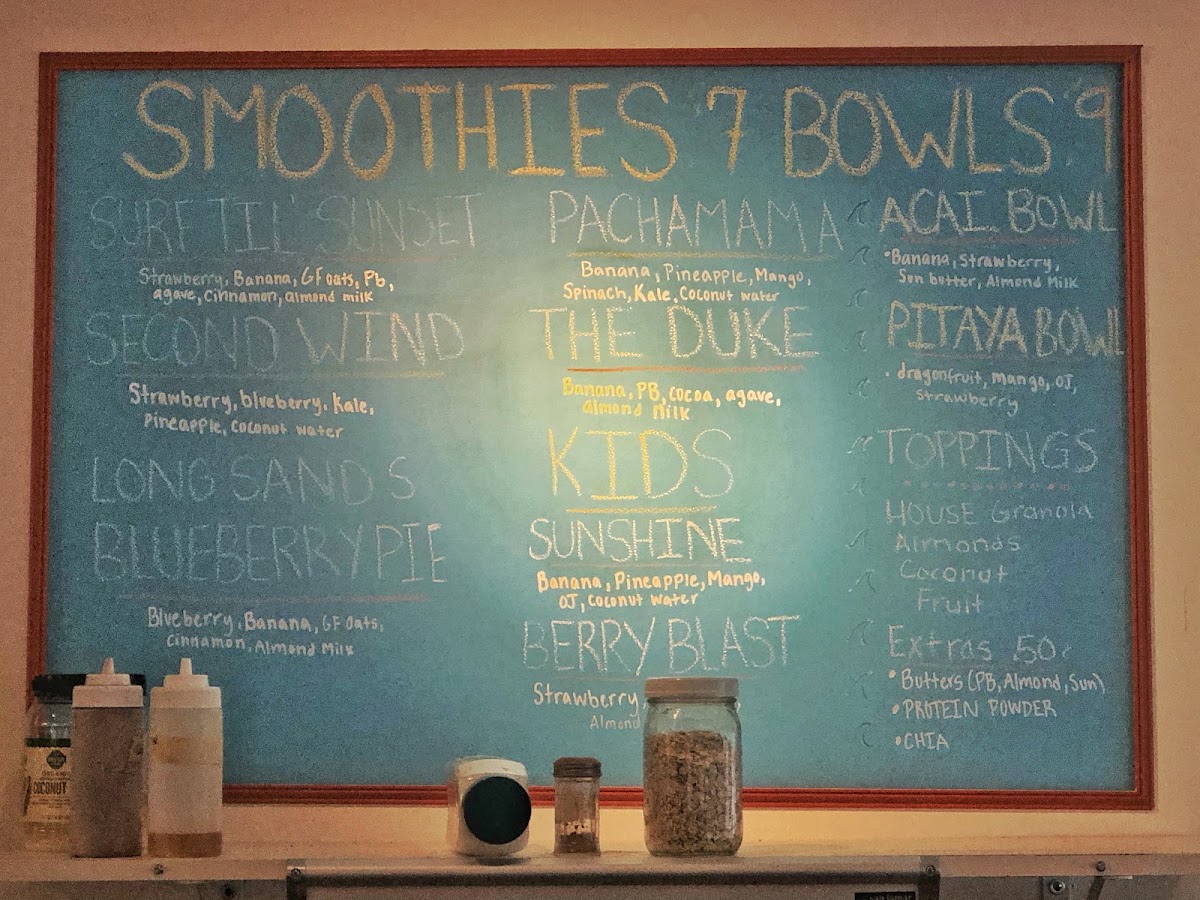 SMOOTHIES 7 BOWLS 9
SURF TIL' SUNSET
Strawberry, Banana, GF oats, Pb,
agave, cinnamon, almond milk
SECOND WIND
Strawberry, blueberry, Kale,
Pineapple, Coconut water
LONG SANDS
BLUEBERRY PIE
Blueberry, Banana, GF Oats,
Cinnamon, Almond Milk
PACHAMAMA
Banana, Pineapple, Mango,
Spinach, Kale, Coconut water
THE DUKE
Banana, PB, cocoa, agave,
almond milk
KIDS
SUNSHINE
Banana, Pineapple, Mango,
OJ, coconut water
BERRY BLAST
Strawberry
Almond
ACAI BOWL
•Banana, Strawberry,
Sun butter, Almond Milk
PITAYA BOWL
• dragonfruit, mango, OJ,
Strawberry
TOPPINGS
HOUSE Granola
Almonds
Coconut
Fruit
Extras .50¢
•Butters (PB, Almond, Sun)
•PROTEIN POWDER
•CHIA
ORGANIC
COCONUT